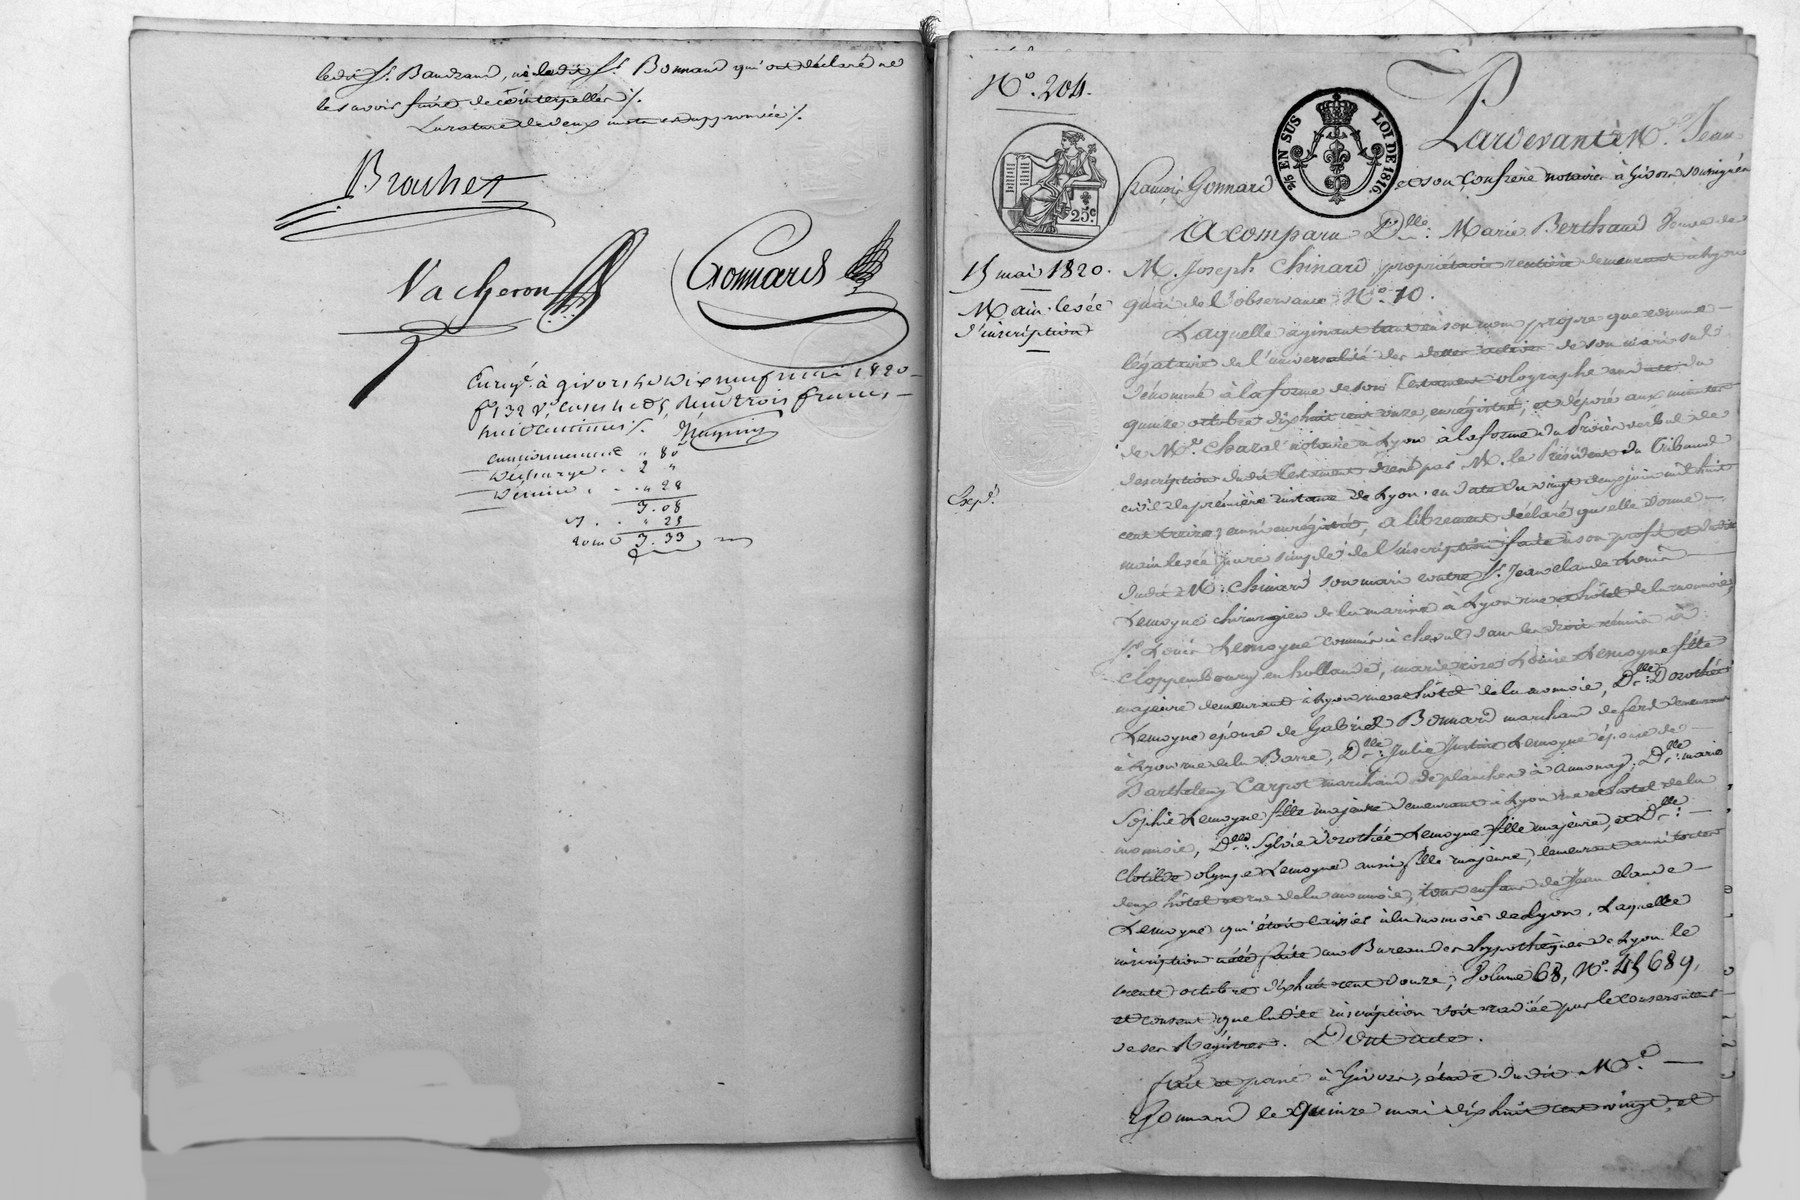 ledit Sr. Baudrand, ni ledit Sr. Bonnard qui ont déclaré ne
le savoir faire de ce interpellés /.
La rature de deux mots est approuvée /.
Brouhet
Vacheron
Gonnard
Enregé. à givors le dix neuf mai 1820
fo. 132 Vo. Reçu trois francs
huit centimes /.
cautionnement " 80
Décharge . . 2 "
Décime . . . " 28
3. 08
" 25
3. 33
No. 204.
25c.
25 % EN SUS
LOI DE 1816.
Pardevant Me. Jean
françois Gonnard et son Confrère notaires à Givors soussignés
A comparu Dlle. Marie Berthaud Veuve de
15 mai 1820.
Main levée
d'inscription
Expé.
M. Joseph Chinard propriétaire rentière demeurant à Lyon
quai de l'observance No. 10.
Laquelle agissant tant en son nom propre que comme
légataire de l'universalité des dettes actives de son mari sus d.
dénommé à la forme de son testament olographe en date du
quinze octobre dix huit cent onze, enregistré, et déposé aux minutes
de Me. Chazal notaire à Lyon à la forme du Procès verbal de
description dudit testament dressé par M. le Président du Tribunal
civil de première instance de Lyon en date du vingt deux juin mil huit
cent treize, aussi enregistré, a librement déclaré qu'elle donne
main levée pure simple de l'inscription faite à son profit et dudit
dudit M. Chinard son mari contre Sr. Jean Claude Louis
Lemoyne chirurgien de la marine à Lyon rue et hôtel de la monnoie,
Sr. Louis Lemoyne commis à cheval dans les droits réunis à
Cloppembourg en hollande, marie rose Louise Lemoyne fille
majeure demeurant à Lyon rue et hôtel de la monnoie, Dlle. Dorothée
Lemoyne épouse de Gabriel Bonnard marchand de fer demeurant
à Lyon rue de la Barre, Dlle. Julie Justine Lemoyne épouse de
Barthelemy Carpot marchand de planches à Annonay, Dlle. marie
Sophie Lemoyne fille majeure demeurant à Lyon rue et hotel de la
monnoie, Dlle. Sylvie Dorothée Lemoyne fille majeure, et Dlle.
Clotilde olympe Lemoyne aussi fille majeure, demeurant aussi toutes
deux hôtel et rue de la monnoie, tous enfans de Jean claude
Lemoyne qui étoit caissier à la monnoie de Lyon, Laquelle
inscription a été faite au Bureau des hypothèques de Lyon le
trente octobre dix huit cent douze, Volume 68, No. 45689,
et consent que ladite inscription soit radiée par le conservateur
de ses Registres. Dont acte.
fait et passé à Givors, étude dudit Me.
Gonnard le quinze mai dix huit cent vingt, et